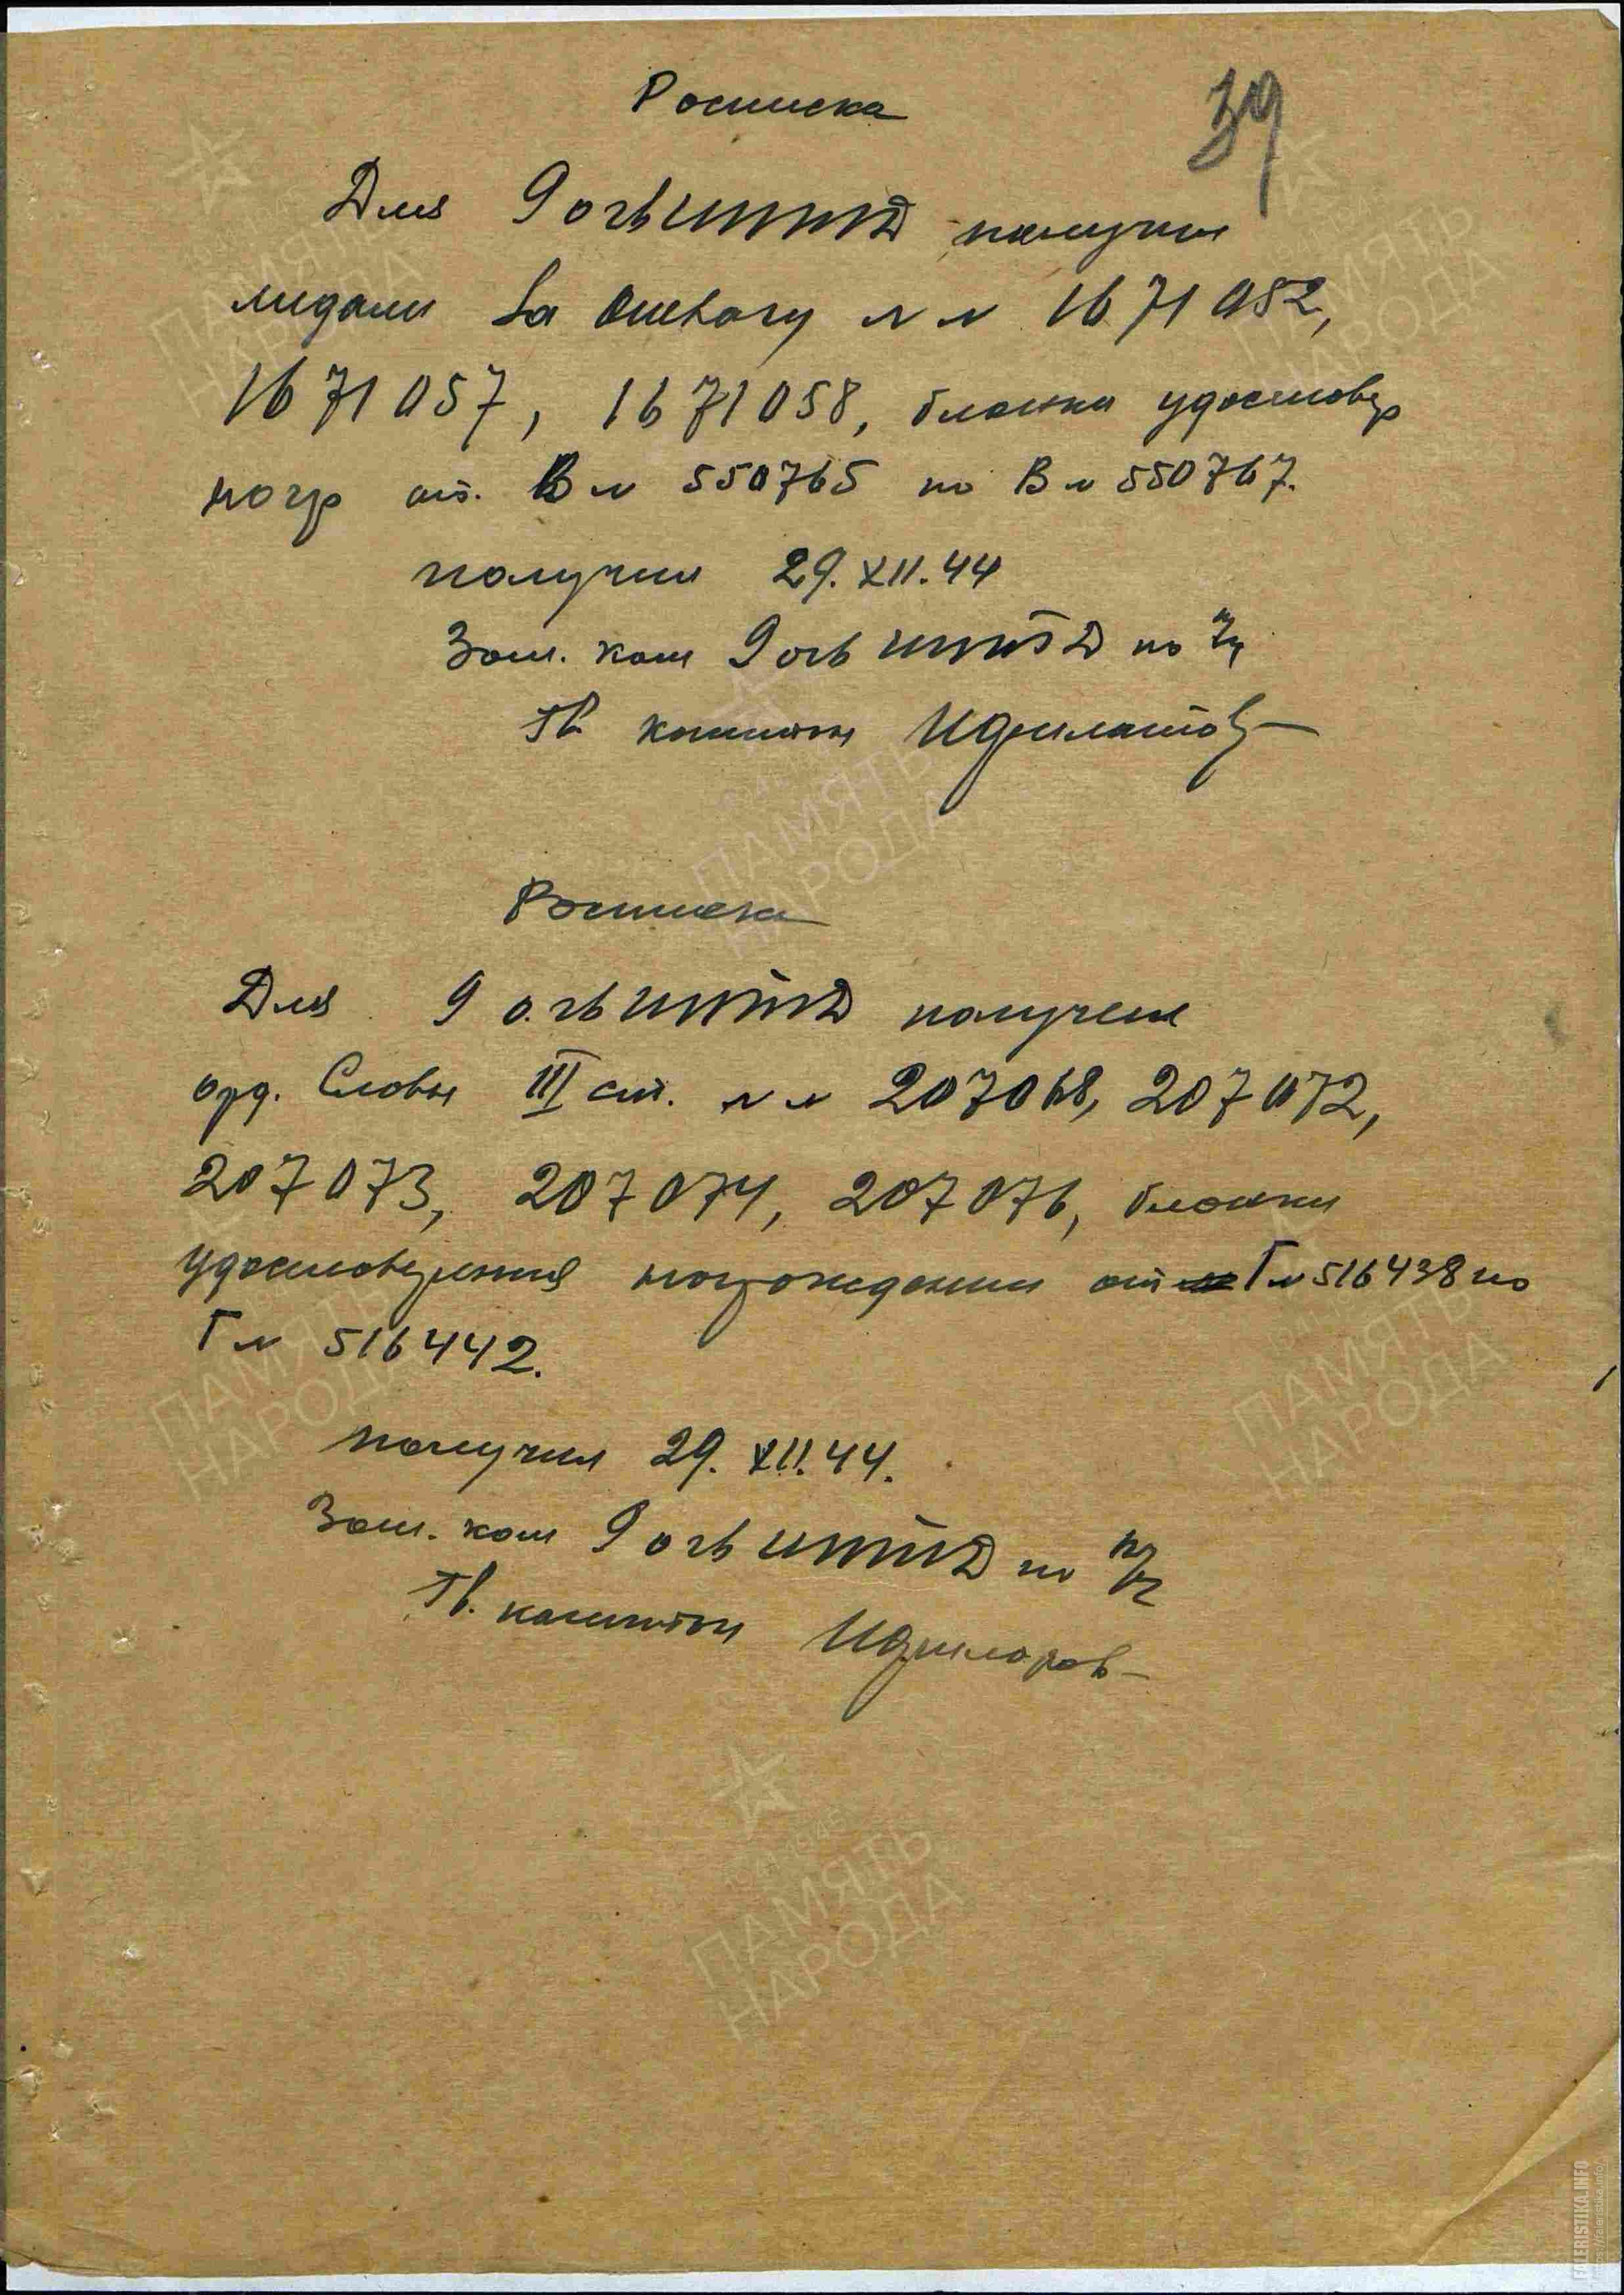 39
Росписка
Для 9 огвиптд получил
медали За отвагу № № 1671052,
1671057, 1671058, бланки удостовер
нагр от. В № 550765 по В № 550767.
получил 29.XII.44
Зам. ком 9 огвиптд по
Гв капитан
Росписка
Для 9 огвиптд получил
орд. Славы III ст. № № 207068, 207072,
207073, 207074, 207076, бланки
удостоверения награждении от Г № 516438 по
Г № 516442.
получил 29.XII.44.
Зам. ком 9 огвиптд по
Гв. капитан
ПАМЯТЬ
НАРОДА
FALERISTIKA.INFO